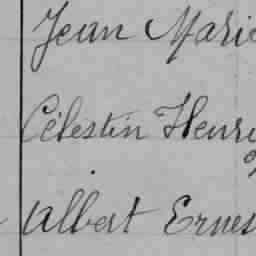 Jean Marie
Célestin Henri
Albert Ernes